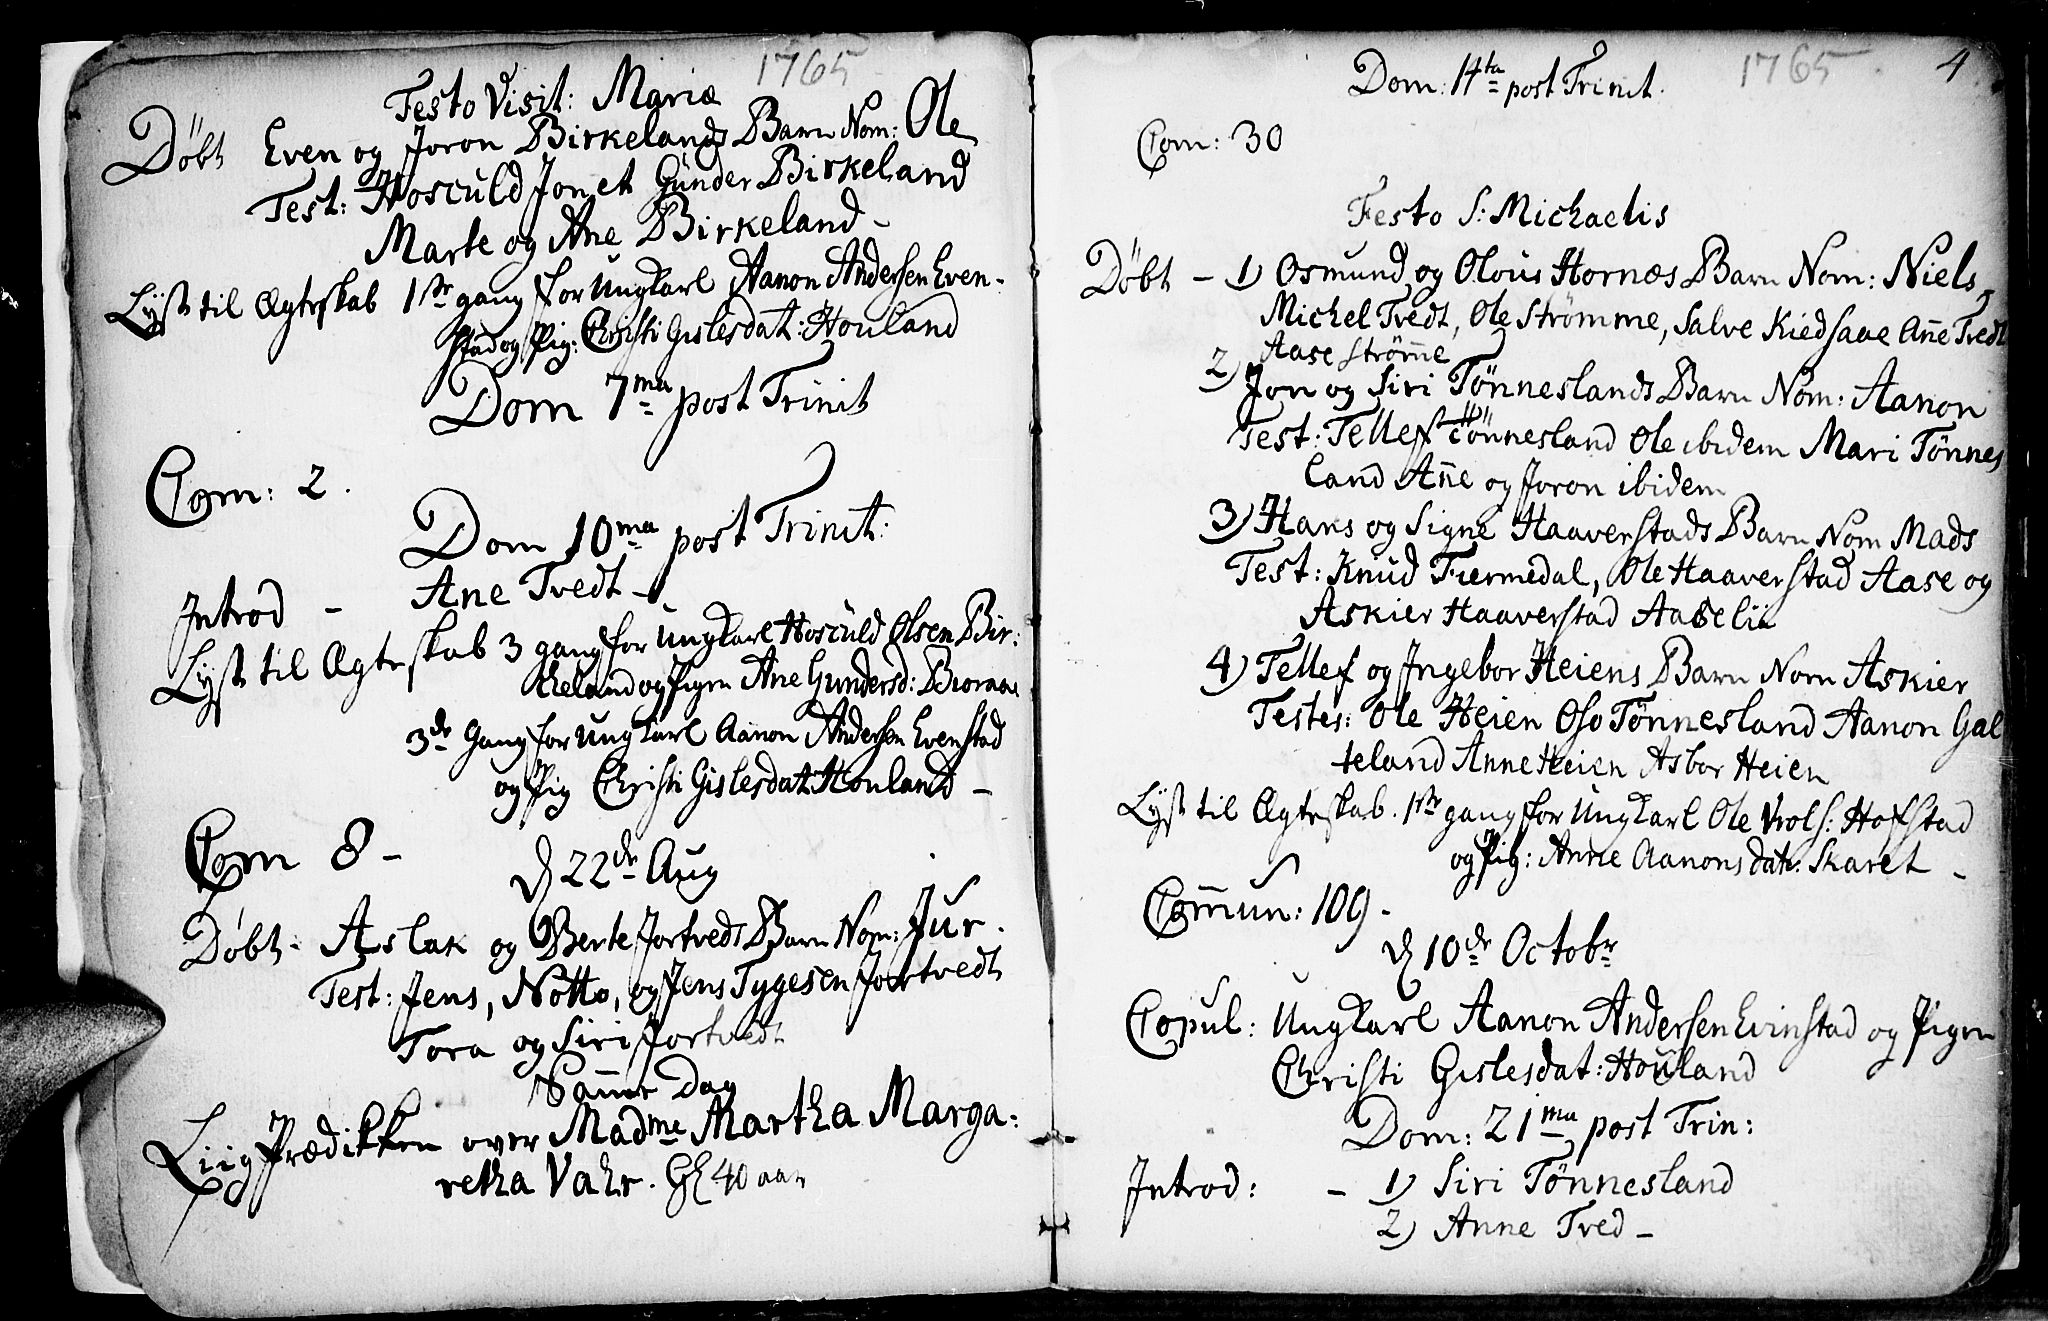 1765
Festo Visit: Mariæ
Döbt Even og Joron Birkelands Barn Nom: Ole
Test: Hosculd Jon et Gunder Birkeland
Marte og Ane Birkeland -
Lyst til Ægteskab 1ste gang for Ungkarl Aanon Andersen Even-
stad og Pig: Christi Gislesdat: Houland
Dom 7ma post Trinit
Com: 2.
Dom 10ma post Trinit:
Introd - Ane Tvedt -
Lyst til Ægteskab 3 gang for Ungkarl Hosculd Olsen Bir:
keland og Pigen Ane Gundersd:
3de Gang for Ungkarl Aanon Andersen Evenstad
og Pig Christi Gislesdat Houland -
Com 8 -
d 22de Aug
Döbt - Aslak og Berte Jortveds Barn Nom: Jur.
Test: Jens, Notto, og Jens Tygesen Jortvedt
Tora og Siri Jortvedt
Samme Dag
Liig Prædikken over Madme Martha Marga:
retha Vahr. Gl 40 aar
1765 4
Dom: 14ta post Trinit.
Com: 30
Festo S: Michaelis
Döbt - 1) Osmund og Olous Hornæs Barn Nom: Niels,
Michel Tvedt, Ole Strömme, Salve Kiedsaae Añe Tvedt
Aase Ström̃e
2) Jon og Siri Tönneslands Barn Nom: Aanon
Test: Tellef Tönnesland Ole ibidem Mari Tönnes
land Añe og Joron ibidem
3) Hans og Signe Haaverstads Barn Nom Mads
Test: Knud Fiermedal, Ole Haaverstad Aase og
Askier Haaverstad Aase Lii
4) Tellef og Ingebor Heiens Barn Nom Askier
Testes: Ole Heien Oso Tönnesland Aanon Gal
teland Anne Heien Asbor Heien
Lyst til Ægteskab. 1ste gang for Ungkarl Ole Knols: Hofstad
og Pig: Anne Aanonsdatr: Skaret -
Com̃un: 109 -
d 10de Octobr
Copul: Ungkarl Aanon Andersen Evinstad og Pigen
Christi Gislesdat: Houland
Dom: 21ma post Trin:
Introd: - 1) Siri Tönnesland
2) Anne Tved -